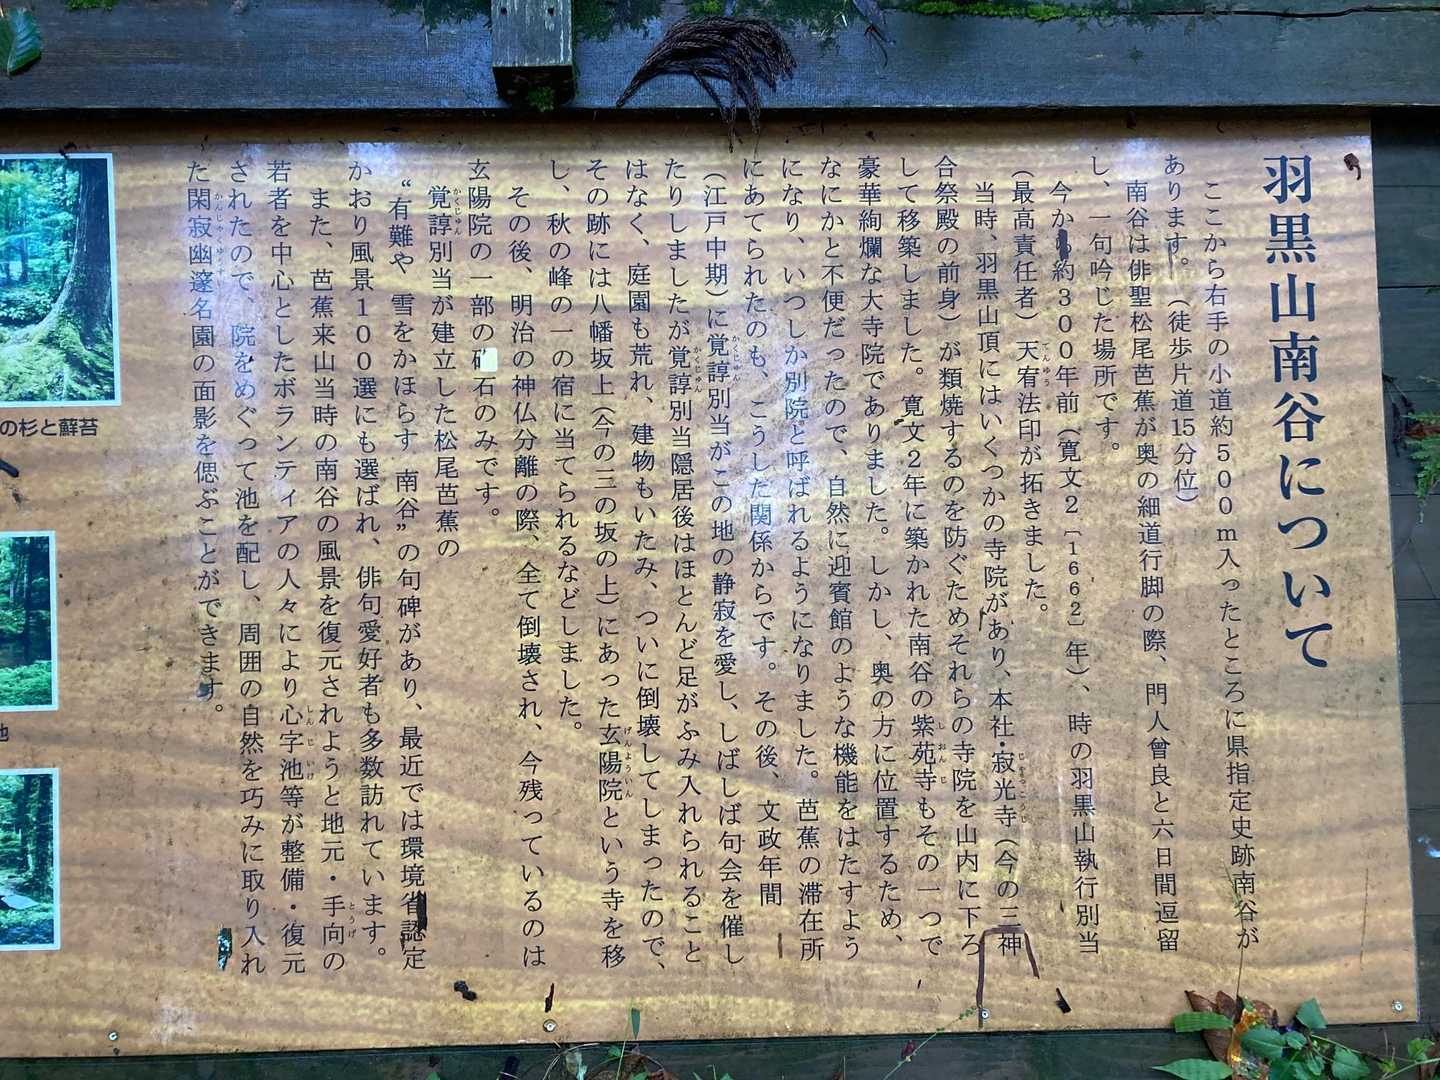 羽黒山南谷について
ここから右手の小道約５００ｍ入ったところに県指定史跡南谷が
あります。（徒歩片道15分位）
南谷は俳聖松尾芭蕉が奥の細道行脚の際、門人曾良と六日間逗留
し、一句吟じた場所です。
今から約３００年前（寛文２〔１６６２〕年）、時の羽黒山執行別当
（最高責任者）天宥法印が拓きました。
当時、羽黒山頂にはいくつかの寺院があり、本社・寂光寺（今の三神
合祭殿の前身）が類焼するのを防ぐためそれらの寺院を山内に下ろ
して移築しました。寛文２年に築かれた南谷の紫苑寺もその一つで
豪華絢爛な大寺院でありました。しかし、奥の方に位置するため、
なにかと不便だったので、自然に迎賓館のような機能をはたすよう
になり、いつしか別院と呼ばれるようになりました。芭蕉の滞在所
にあてられたのも、こうした関係からです。その後、文政年間
（江戸中期）に覚諄別当がこの地の静寂を愛し、しばしば句会を催し
たりしましたが覚諄別当隠居後はほとんど足がふみ入れられること
はなく、庭園も荒れ、建物もいたみ、ついに倒壊してしまったので、
その跡には八幡坂上（今の三の坂の上）にあった玄陽院という寺を移
し、秋の峰の一の宿に当てられるなどしました。
その後、明治の神仏分離の際、全て倒壊され、今残っているのは
玄陽院の一部の石のみです。
覚諄別当が建立した松尾芭蕉の
“有難や　雪をかほらす　南谷”の句碑があり、最近では環境省認定
かおり風景１００選にも選ばれ、俳句愛好者も多数訪れています。
また、芭蕉来山当時の南谷の風景を復元されようと地元・手向の
若者を中心としたボランティアの人々により心字池等が整備・復元
されたので、院をめぐって池を配し、周囲の自然を巧みに取り入れ
た閑寂幽邃名園の面影を偲ぶことができます。
の杉と蘚苔
池